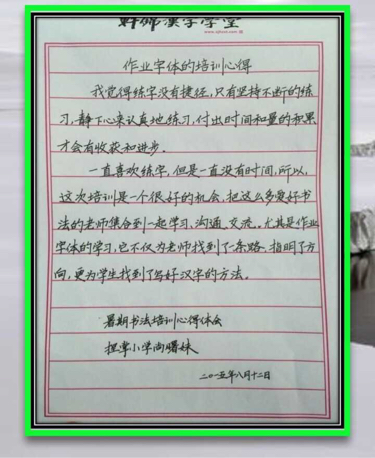 漢字学堂
作业字体的培训心得
我觉得练字没有捷径，只有坚持不断的练
习，静下心来认真地练习，付出时间和量的积累
才会有收获和进步。
一直喜欢练字，但是一直没有时间，所以，
这次培训是一个很好的机会，把这么多爱好书
法的老师集合到一起学习、沟通、交流。尤其是作业
字体的学习，它不仅为老师找到了一条路，指明了方
向，更为学生找到了写好汉字的方法。
暑期书法培训心得体会
小学尚
二〇一五年八月十二日